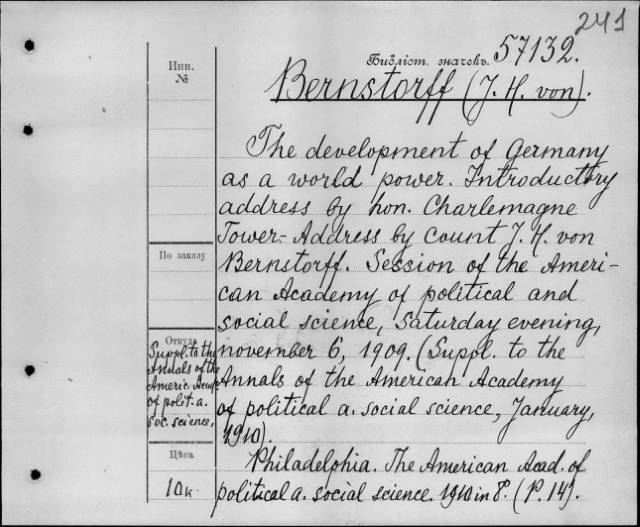 241
Библіот. значекъ. 57132.
Bernstorff (J. H. von).
Инв.
№
The development of Germany
as a world power. Introductory
address by hon. Charlemagne
Tower - Address by count J. H. von
По заказу
Bernstorff. Session of the Ameri-
can Academy of political and
social science, Saturday evening,
Откуда
november 6, 1909. (Suppl. to the
Annals of the American Academy
of political a. social science, January,
1910).
Suppl. to the
Annals of the
Americ. Acad.
of polit. a.
soc. science,
Цѣна
10к
Philadelphia. The American Acad. of
political a. social science. 1910 in 8°. (P. 14).